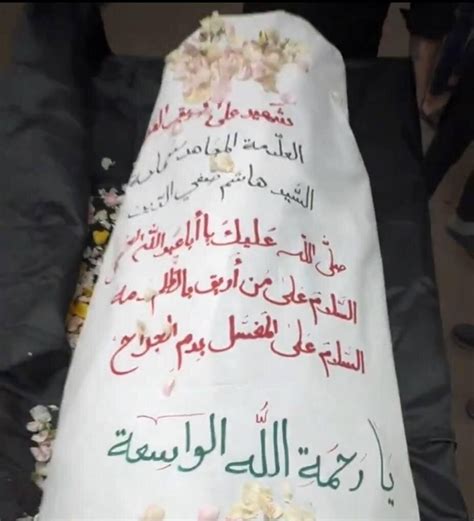 شهيد على طريق القدس
العلامة المجاهد سماحة
السيد هاشم صفي الدين
صلى الله عليك يا أبا عبد الله الحسين
السلام على من أريق بالظلم دمه
السلام على المغسل بدم الجراح
يا رحمة الله الواسعة